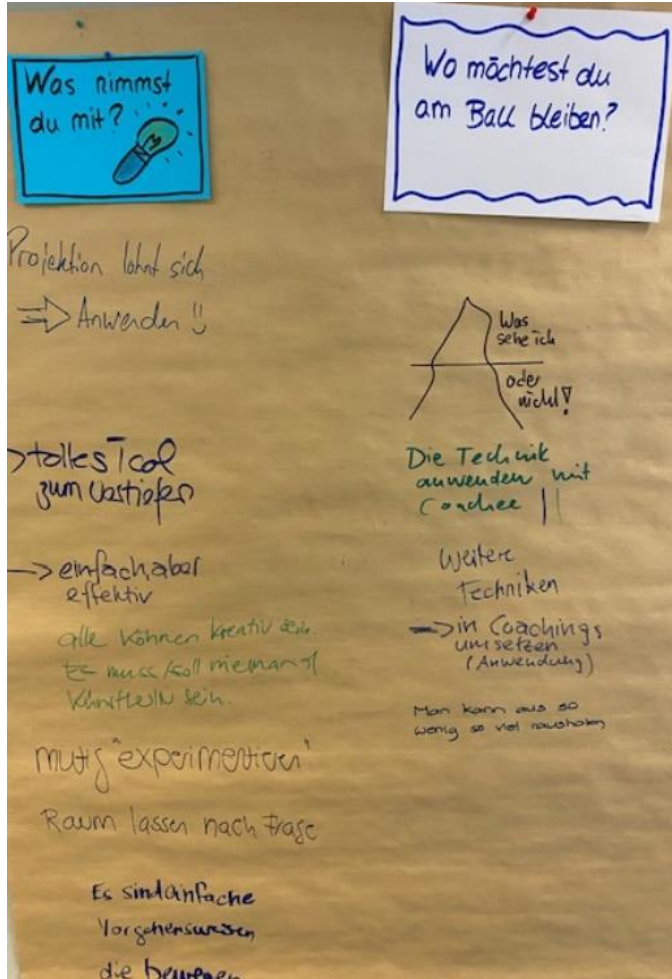 Was nimmst
du mit?
Projektion lohnt sich
⇒ Anwenden !!
> tolles Tool
zum Vertiefen
→ einfach, aber
effektiv
alle können kreativ sein.
Es muss/soll niemand
KünstlerIN sein.
mutig "experimentieren"
Raum lassen nach Frage
Es sind einfache
Vorgehensweisen
die bewegen
Wo möchtest du
am Ball bleiben?
Was
sehe ich
oder
nicht!
Die Technik
anwenden mit
Coachee ||
Weitere
Techniken
→ in Coachings
umsetzen
(Anwendung)
Man kann aus so
wenig so viel rausholen